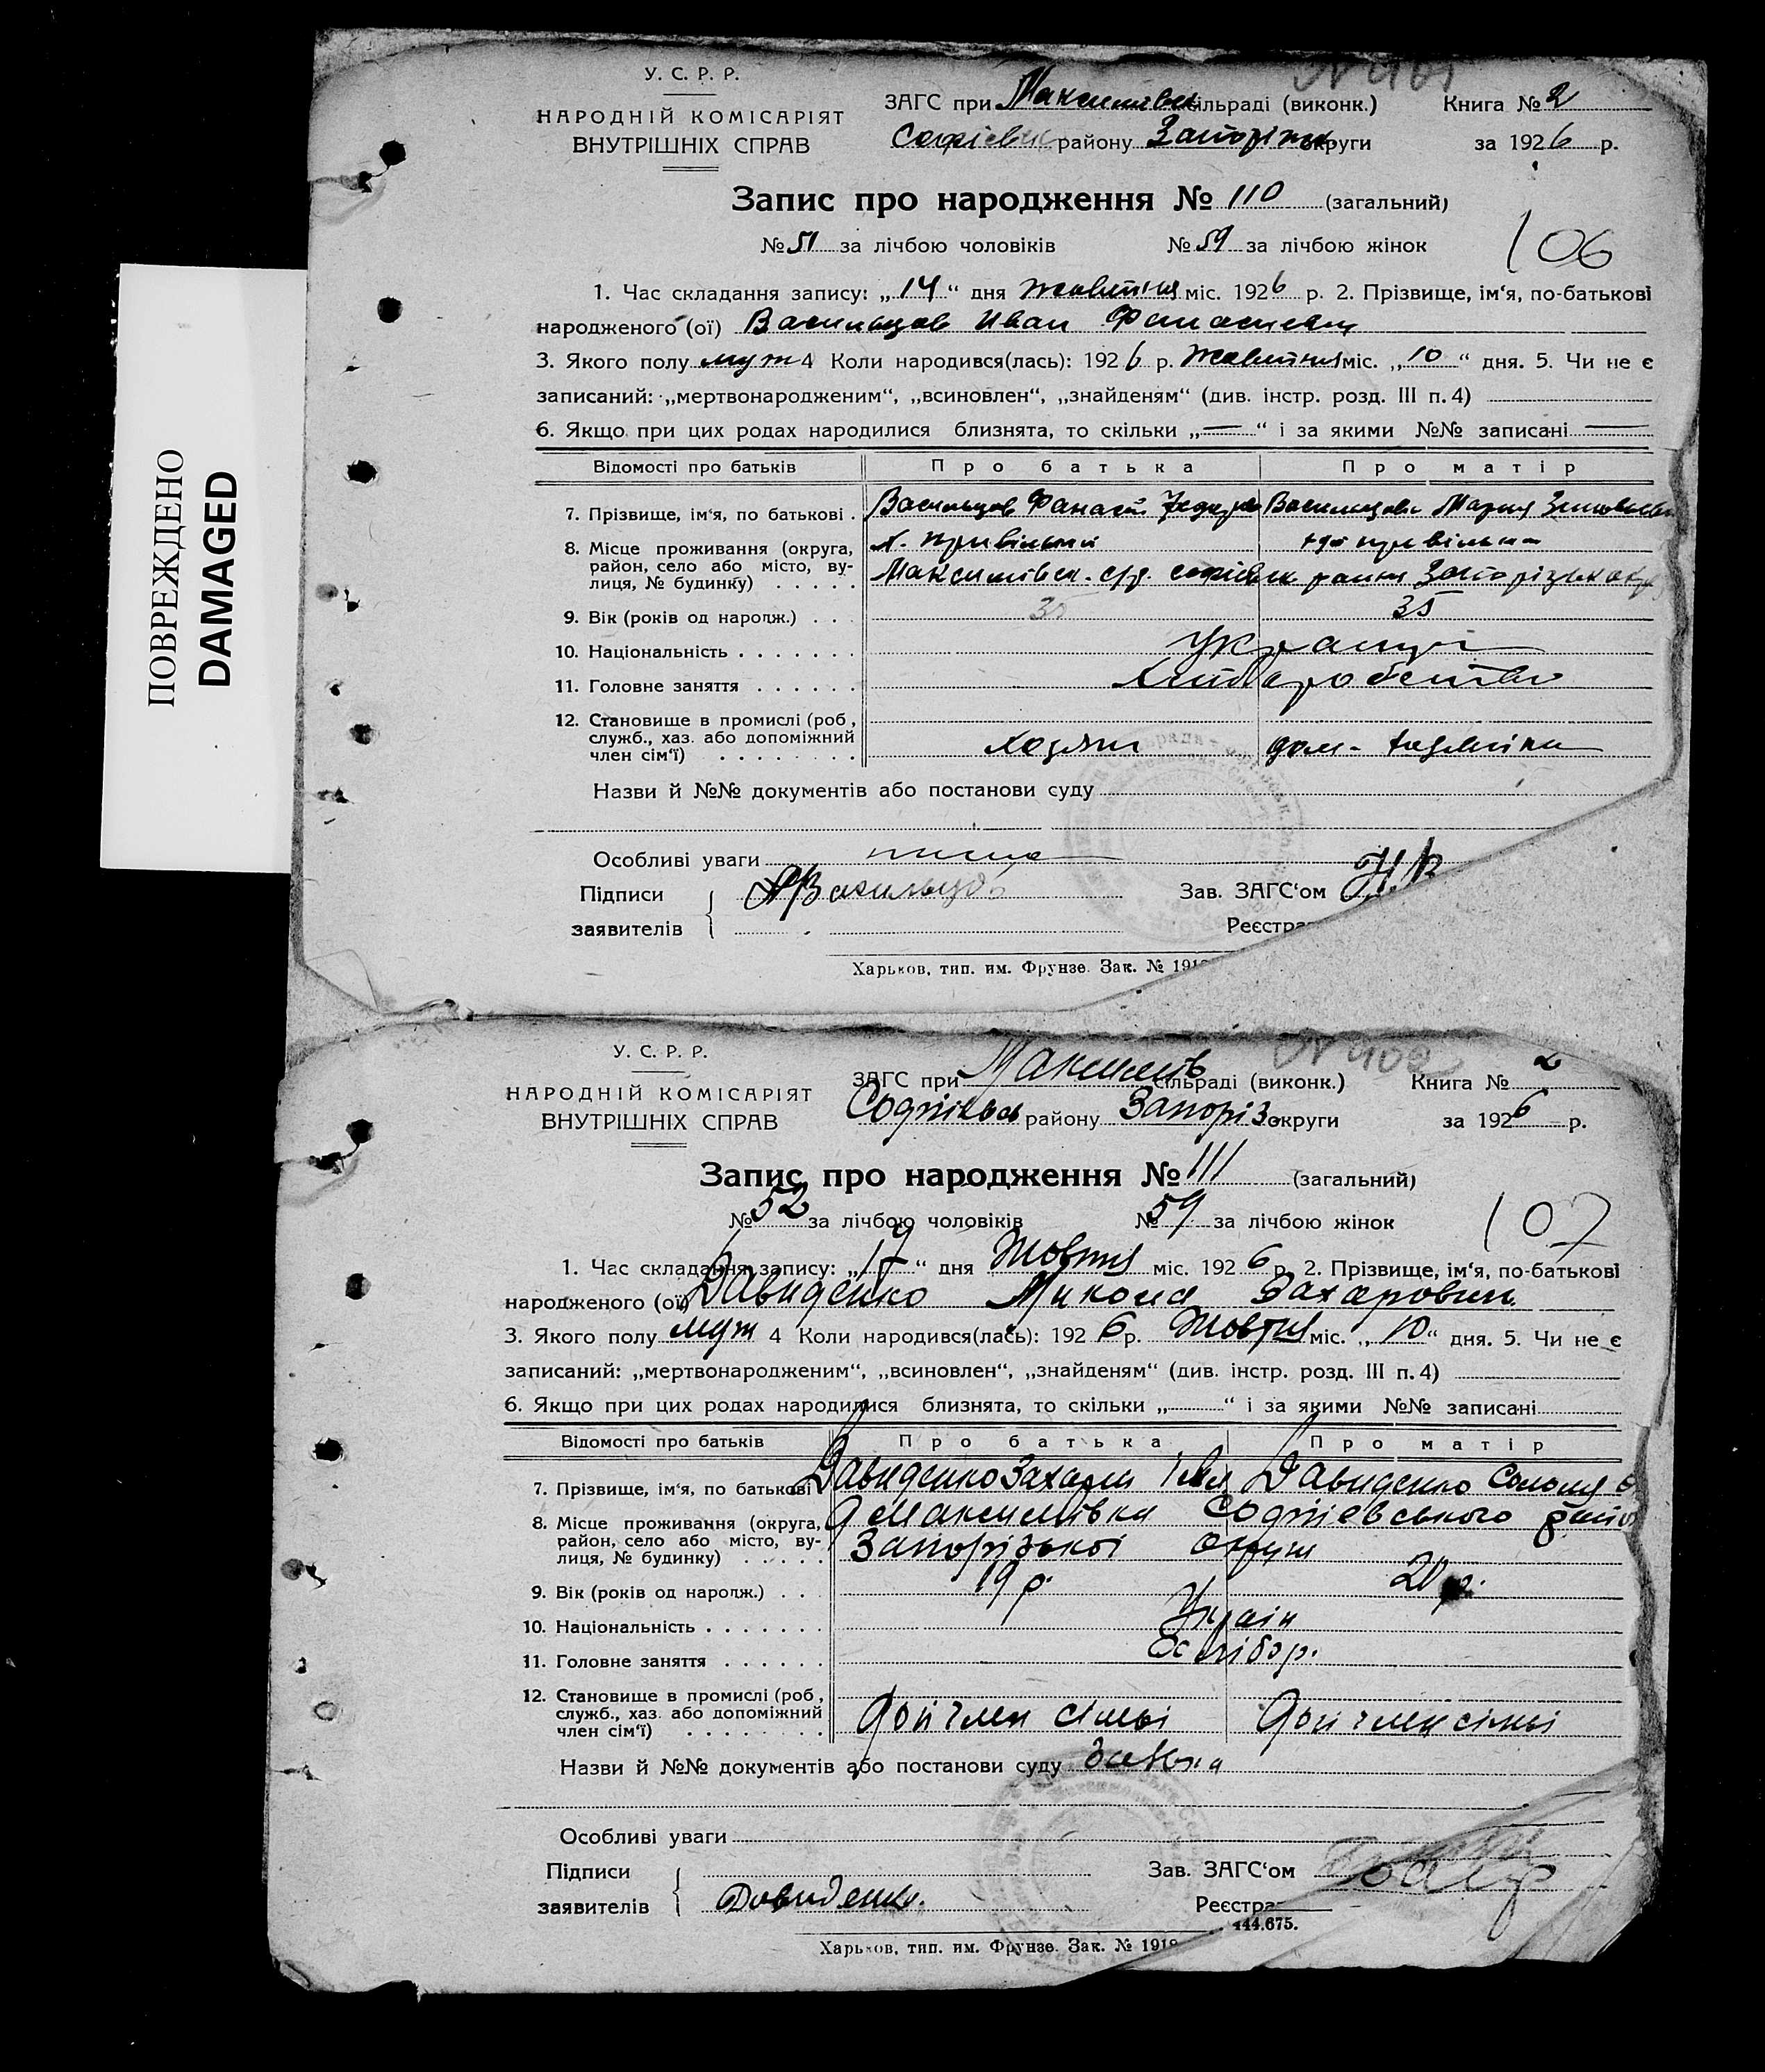 ПОВРЕЖДЕНО
DAMAGED
У. С. Р. Р.
НАРОДНІЙ КОМІСАРІЯТ
ВНУТРІШНІХ СПРАВ
ЗАГС при Максимівськ сільраді (виконк.) Книга № 2
Софієвськ району Запорізьк. округи за 1926 р.
Запис про народження № 110 (загальний)
№ 51 за лічбою чоловіків № 59 за лічбою жінок
106
1. Час складання запису: „14“ дня Жовтня міс. 1926 р. 2. Прізвище, ім‘я, по-батькові
народженого (ої) Васильцов Иван Фанасиевич
3. Якого полу муж 4 Коли народився(лась): 1926 р. Жовтня міс. „10“ дня. 5. Чи не є
записаний: „мертвонародженим“, „всиновлен“, „знайденям“ (див. інстр. розд. III п. 4)
6. Якщо при цих родах народилися близнята, то скільки „—“ і за якими №№ записані —
Відомості про батьків Про батька Про матір
7. Прізвище, ім‘я, по батькові . Васильцов Фанасій Васильцова Мария
8. Місце проживання (округа, район, село або місто, вулиця, № будинку) х. Привільний
Максимівск. с/р. софієвск. району Запорізьк окр
9. Вік (років од народж.) . . . 35 35
10. Національність . . . . . . . Украинці
11. Головне заняття . . . . . . Хліборобство
12. Становище в промислі (роб, служб., хаз. або допоміжний член сім‘ї) . . . . . . . . хозяин дом-хозяйка
Назви й №№ документів або постанови суду
Особливі уваги
Підписи Васильцов Зав. ЗАГС‘ом
заявителів Реєстра
Харьков, тип. им. Фрунзе. Зак. № 191
У. С. Р. Р.
НАРОДНІЙ КОМІСАРІЯТ
ВНУТРІШНІХ СПРАВ
№ 402
ЗАГС при Максимів сільраді (виконк.) Книга № 2
Софіївськ району Запоріз округи за 1926 р.
Запис про народження № 111 (загальний)
№ 52 за лічбою чоловіків № 59 за лічбою жінок
107
1. Час складання запису: „19“ дня Жовтня міс. 1926 р. 2. Прізвище, ім‘я, по-батькові
народженого (ої) Давиденко Микола Захарович
3. Якого полу муж 4 Коли народився(лась): 1926 р. Жовтня міс. „10“ дня. 5. Чи не є
записаний: „мертвонародженим“, „всиновлен“, „знайденям“ (див. інстр. розд. III п. 4)
6. Якщо при цих родах народилися близнята, то скільки „ “ і за якими №№ записані
Відомості про батьків Про батька Про матір
7. Прізвище, ім‘я, по батькові Давиденко Захарій Давиденко
8. Місце проживання (округа, район, село або місто, вулиця, № будинку) . . . . . Максимівка Софіевського району
Запорізької округи
9. Вік (років од народж.) . . . 19 р. 20 р.
10. Національність . . . . . . . Україн
11. Головне заняття . . . . . . Хлібор.
12. Становище в промислі (роб, служб., хаз. або допоміжний член сім‘ї) . . . . . . . . Доп член сімьі Доп член сімьі
Назви й №№ документів або постанови суду
Особливі уваги
Підписи Зав. ЗАГС‘ом
заявителів Давиденко. Реєстра
444.675.
Харьков, тип. им. Фрунзе. Зак. № 1918